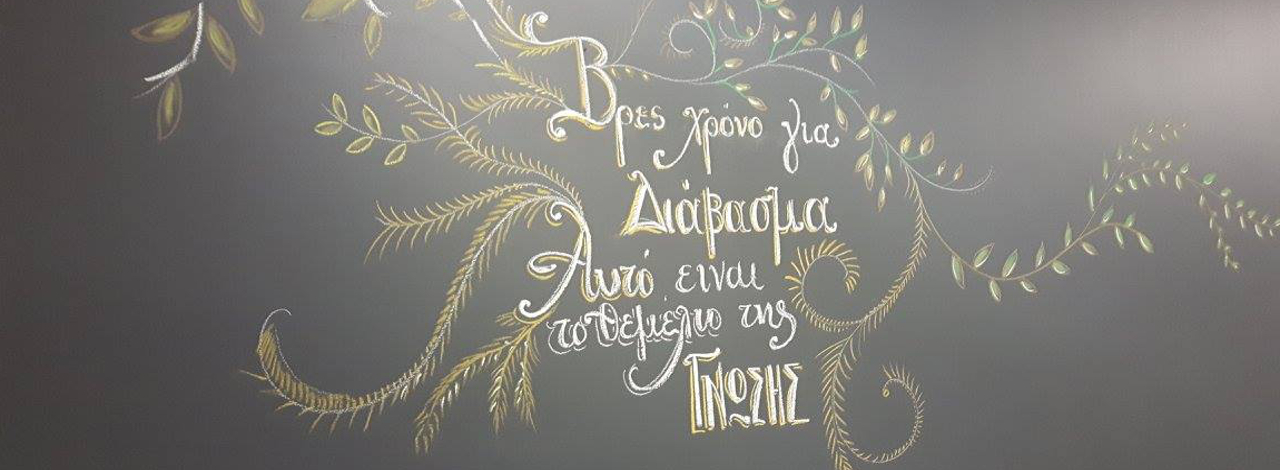 Βρες χρόνο για
Διάβασμα
Αυτό ειναι
το θεμέλιο της
ΓΝΩΣΗΣ